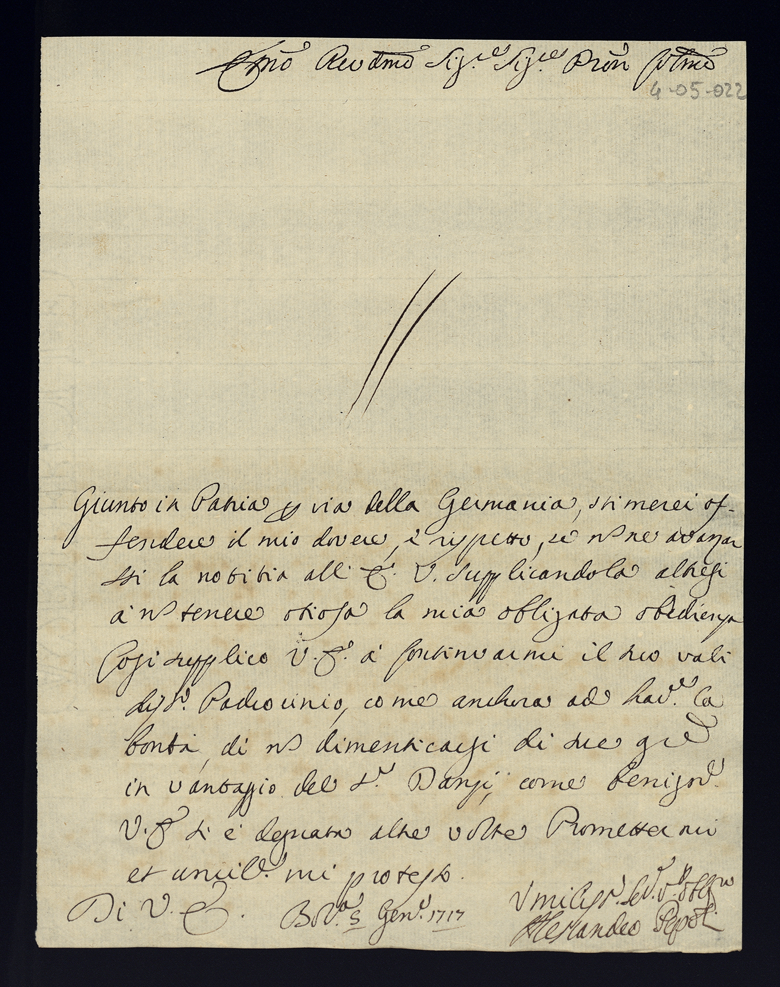 Em̃o Reudmo Sig.re Sig.re Pron̄ Colmo
4-05-022
Giunto in Patria p via della Germania, stimerei of-
fendere il mio dovere, è rispetto, se nō ne avanza
ssi la notitia all' E. V. supplicandola altresi
à nō tenere otiosa la mia obligata obedienza
Cosi supplico V. E. à continuarmi il suo vali
diss.o Padrocinio, come anchora ad hav.e la
bontà, di nō dimenticarsi di sue grē
in vantaggio del S.r Danzi, come benigne.
V. E. si è degnata altre volte Promettermi
et umil.e mi protesto.
Di V. E. Bol.a 5 Gen.o 1717
Umiliss.o Se.re
Alessandro Pepoli